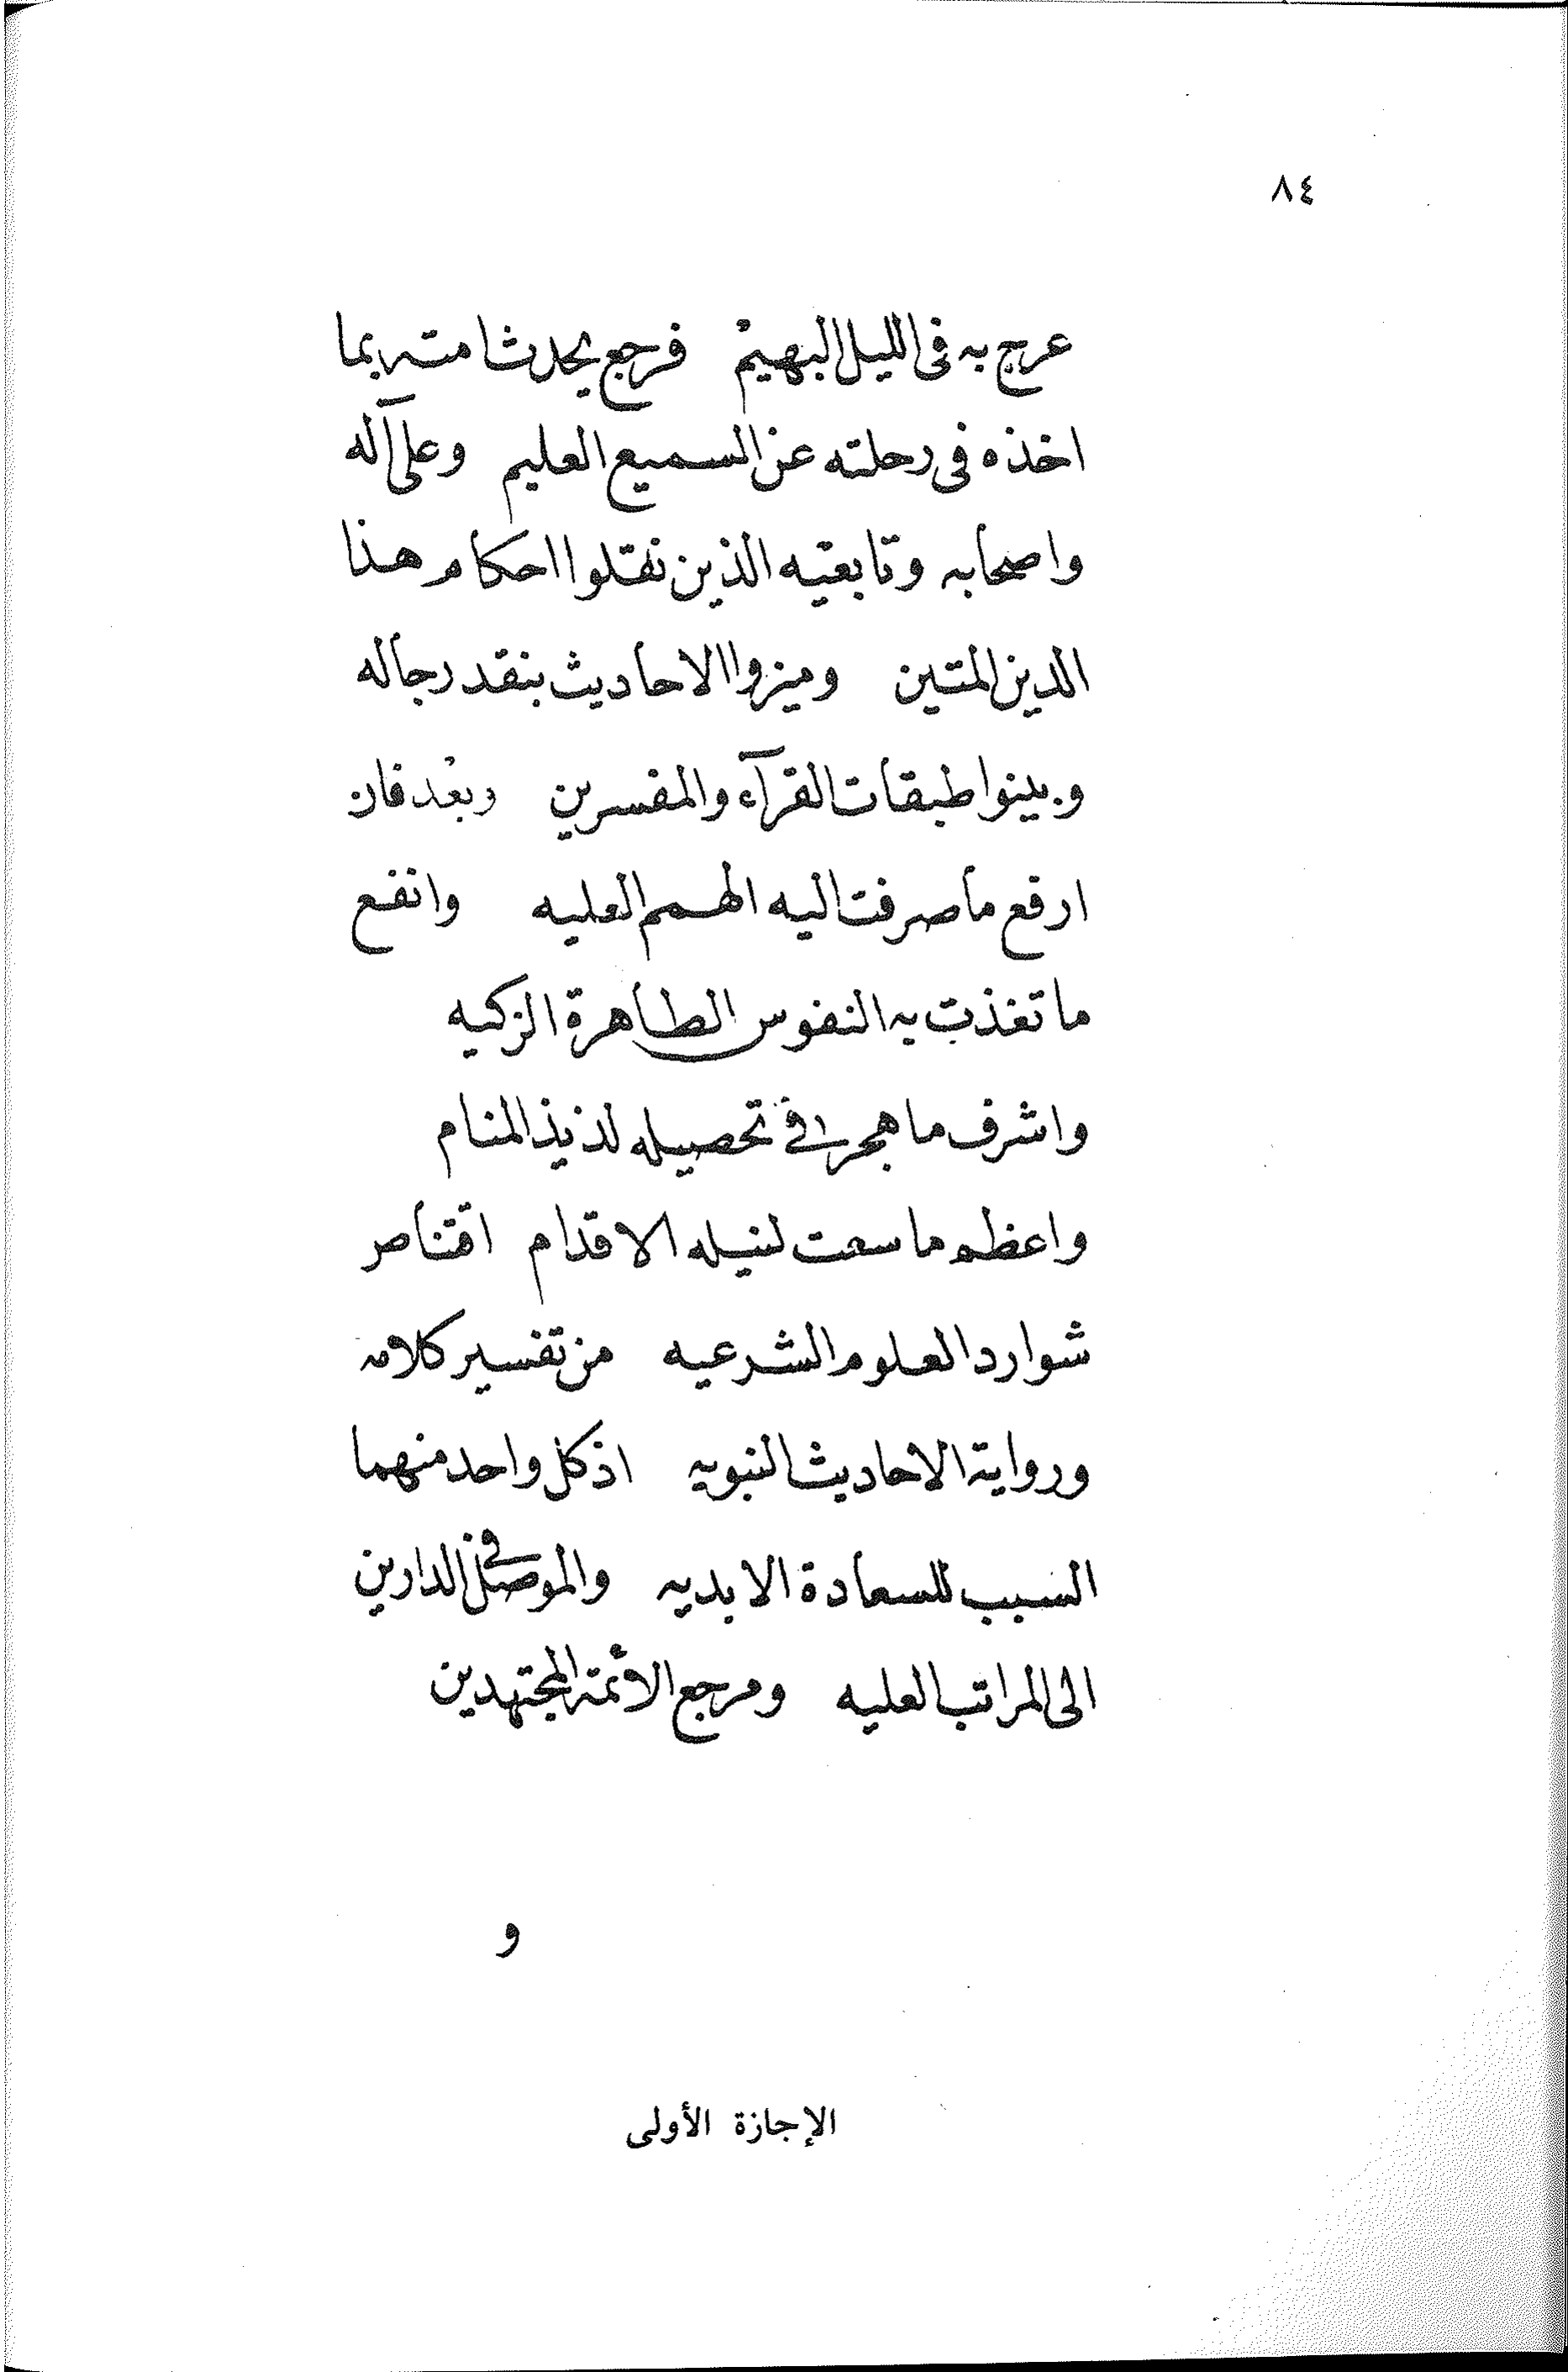 ٨٤
عرج به فى الليل البهيم فرجع يحدث امته بما
اخذه فى رحلته عن السميع العليم وعلى آله
واصحابه وتابعيه الذين نقلوا احكام هذا
الدين المتين وميزوا الاحاديث بنقد رجاله
وبينوا طبقات القرآء والمفسرين وبعد فان
ارفع ما صرفت اليه الهمم العليه وانفع
ما تغذت به النفوس الطاهرة الزكيه
واشرف ما هجر فى تحصيله لذيذ المنام
واعظم ما سعت لنيله الاقدام اقتناص
شوارد العلوم الشرعيه من تفسير كلامه
ورواية الاحاديث النبويه اذ كل واحد منهما
السبب للسعادة الابديه والموصل فى الدارين
الى المراتب العليه ومرجع الائمة المجتهدين
و
الإجازة الأولى